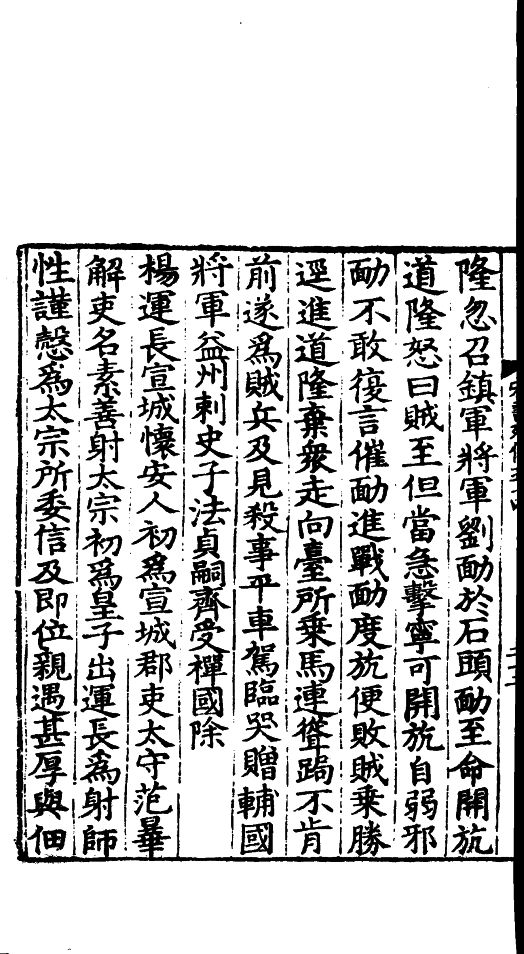 隆忽召鎮軍將軍劉勔於石頭勔至命開航
道隆怒曰賊至但當急擊寧可開航自弱邪
勔不敢復言催勔進戰勔度航便敗賊乗勝
逕進道隆棄衆走向臺所乗馬連聳跼不肯
前遂爲賊兵及見殺事平車駕臨哭贈輔國
將軍益州刺史子法貞嗣齊受禪國除
楊運長宣城懷安人初爲宣城郡吏太守范曅
解吏名素善射太宗初爲皇子出運長爲射師
性謹慤爲太宗所委信及即位親遇甚厚與佃